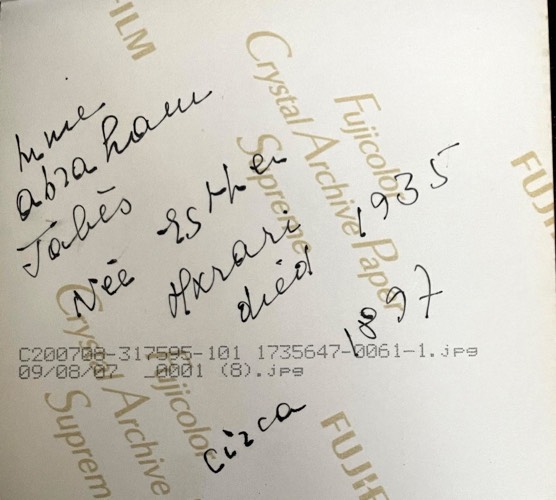 Mme
abraham
Jabès
Née Esther
Harari
died 1935
circa 1897
C200708-317595-101 1735647-0061-1.jpg
09/08/07 _0001 (8).jpg
Fujicolor
Crystal Archive Paper
Supreme
Fujicolor
Crystal Archive
Suprem
FUJI
FU
ILM